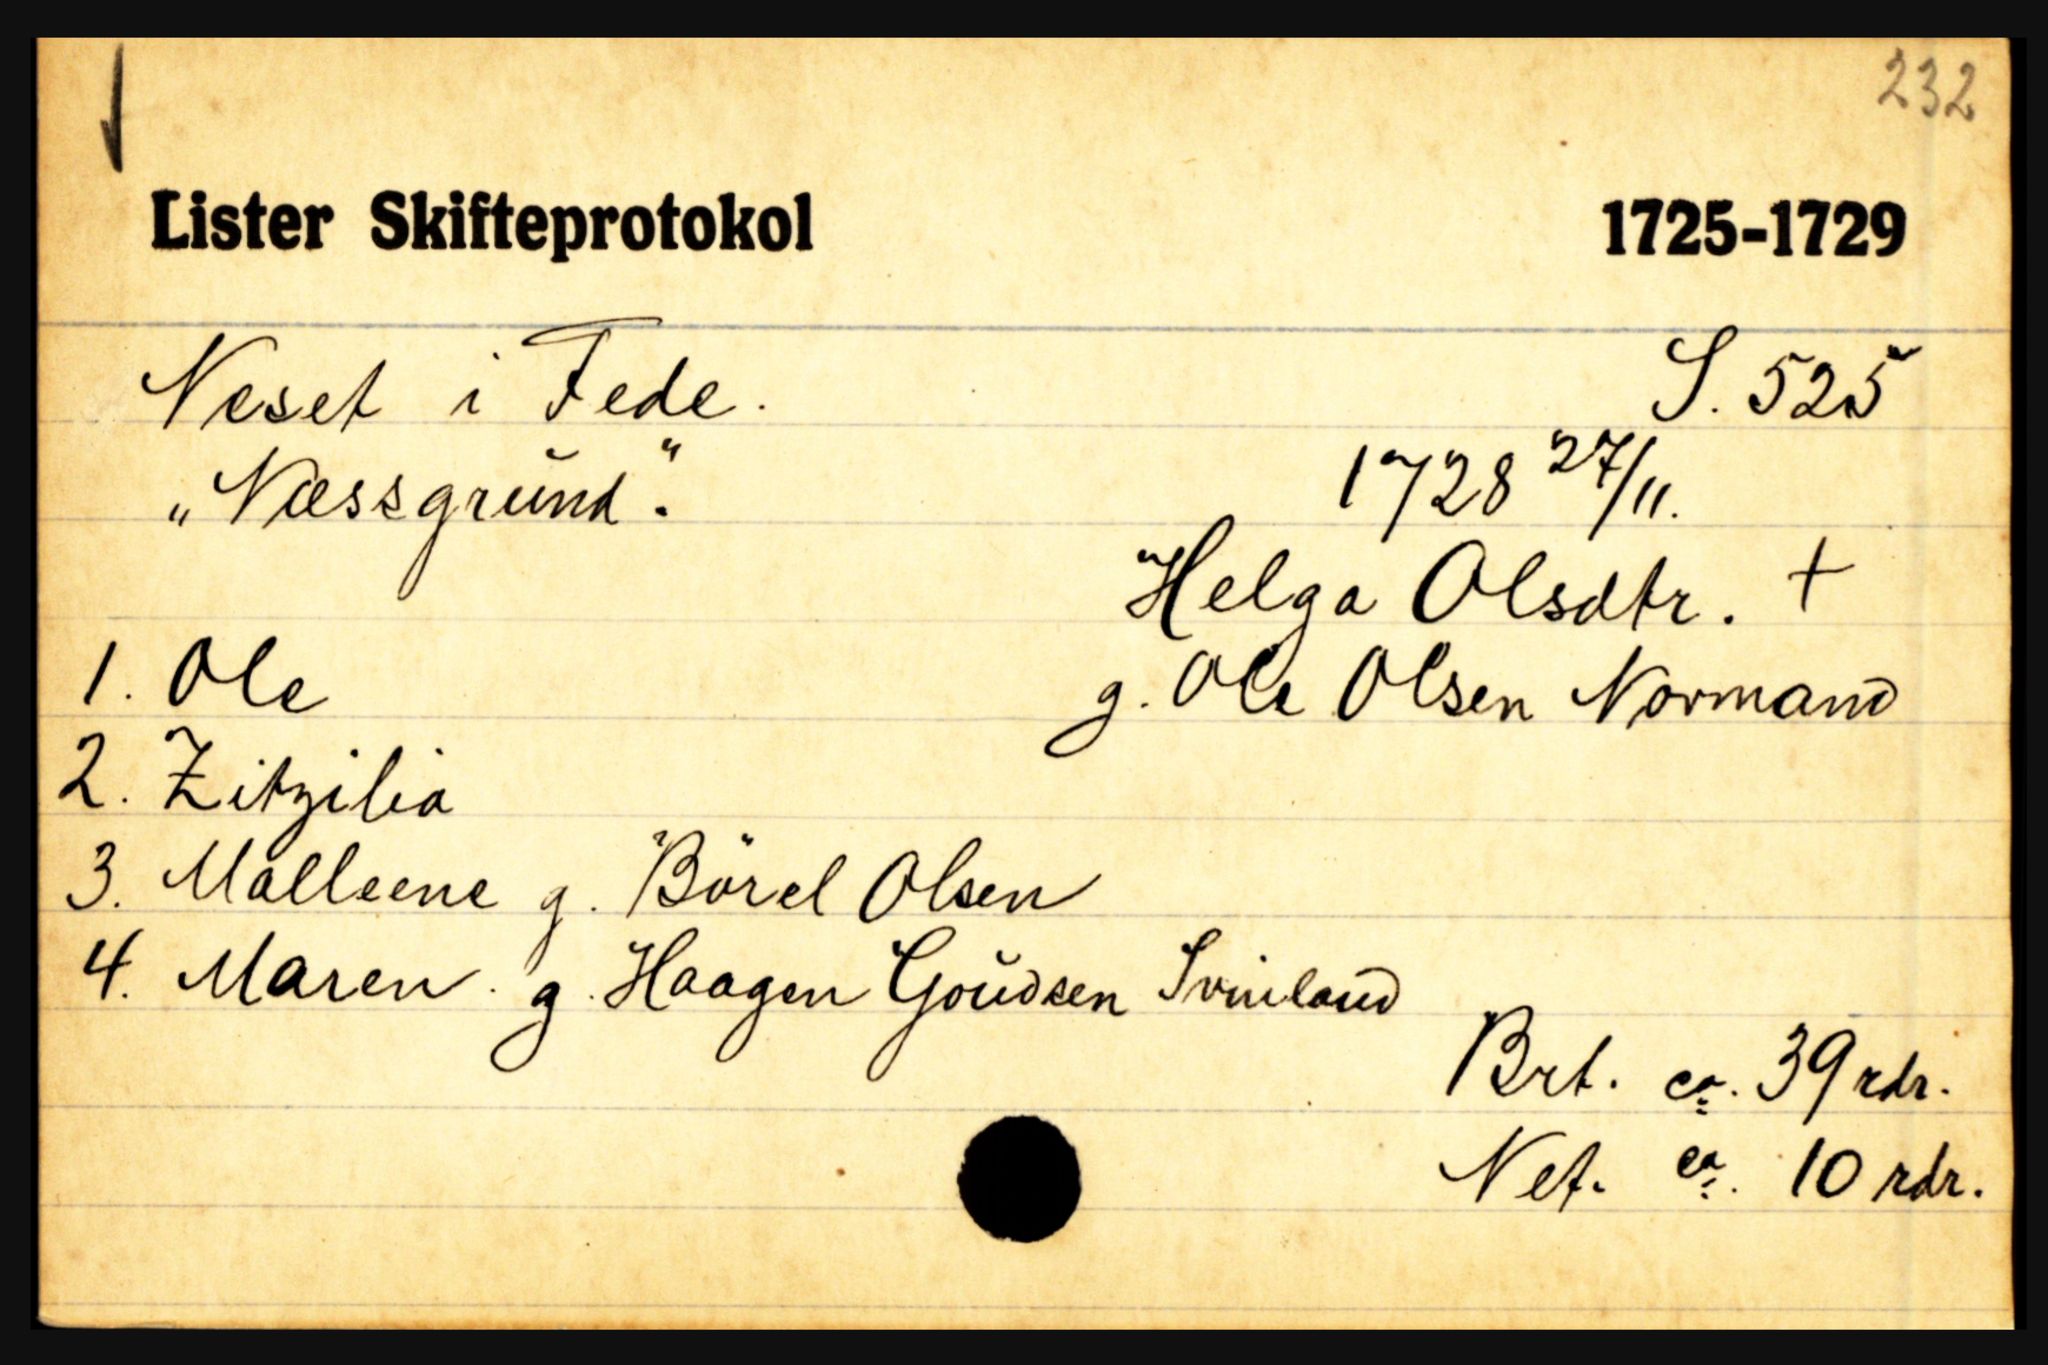 232
Lister Skifteprotokol 1725-1729
Neset i Fede. S. 525
„Næssgrŭnd“. 1728 27/11.
Helga Olsdtr. +
1. Ole g. Ole Olsen Normand
2. Zitzilia
3. Malleene g. Börel Olsen
4. Maren. g. Haagen Goŭdsen Svinland
Brt. ca. 39 rdr.
Net. ca. 10 rdr.